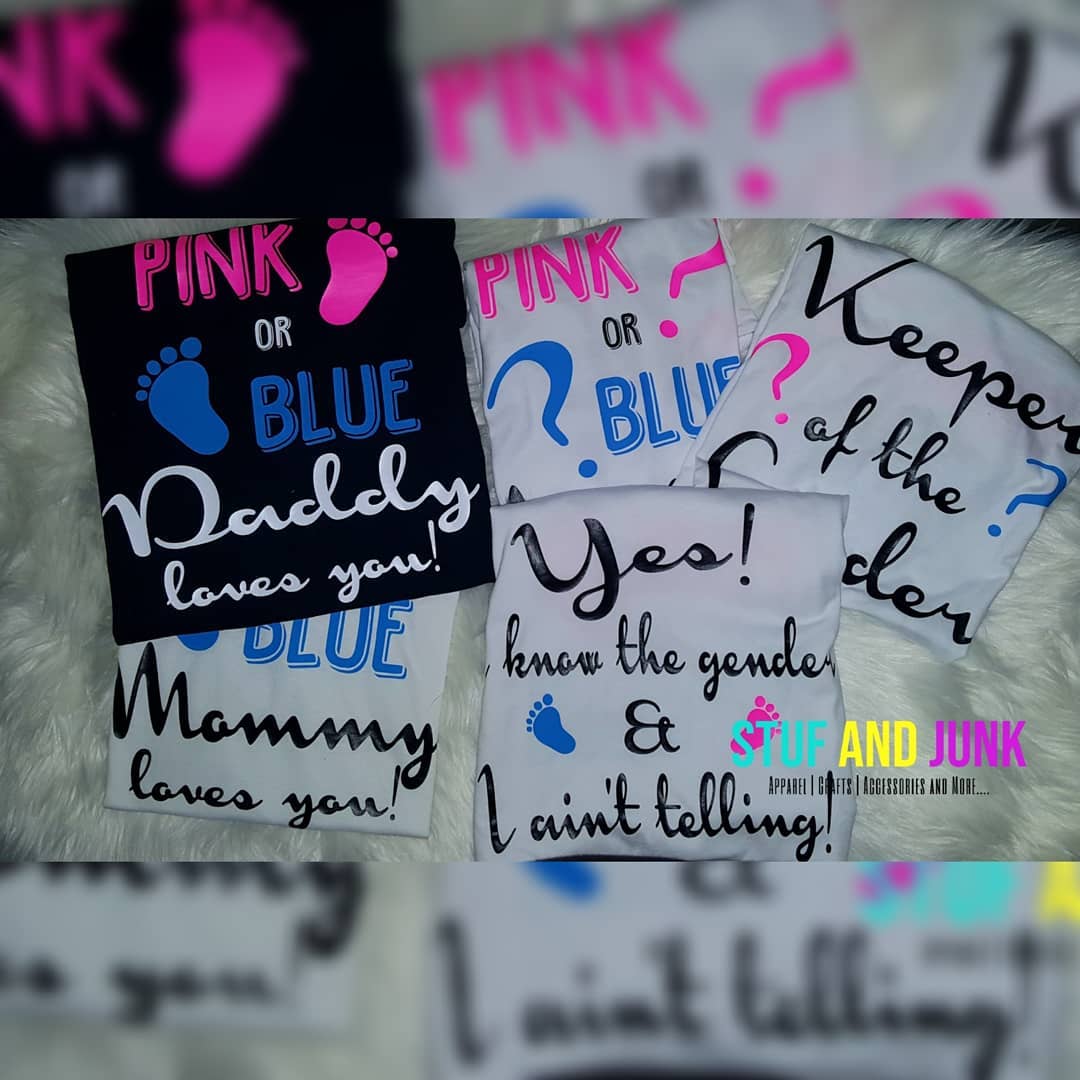 PINK
OR
BLUE
Daddy
loves you!
BLUE
Mommy
loves you!
PINK ?
OR
? BLUE
Keeper
? of the ?
der
Yes!
know the gender
&
I ain't telling!
STUF AND JUNK
APPAREL | CRAFTS | ACCESSORIES AND MORE....